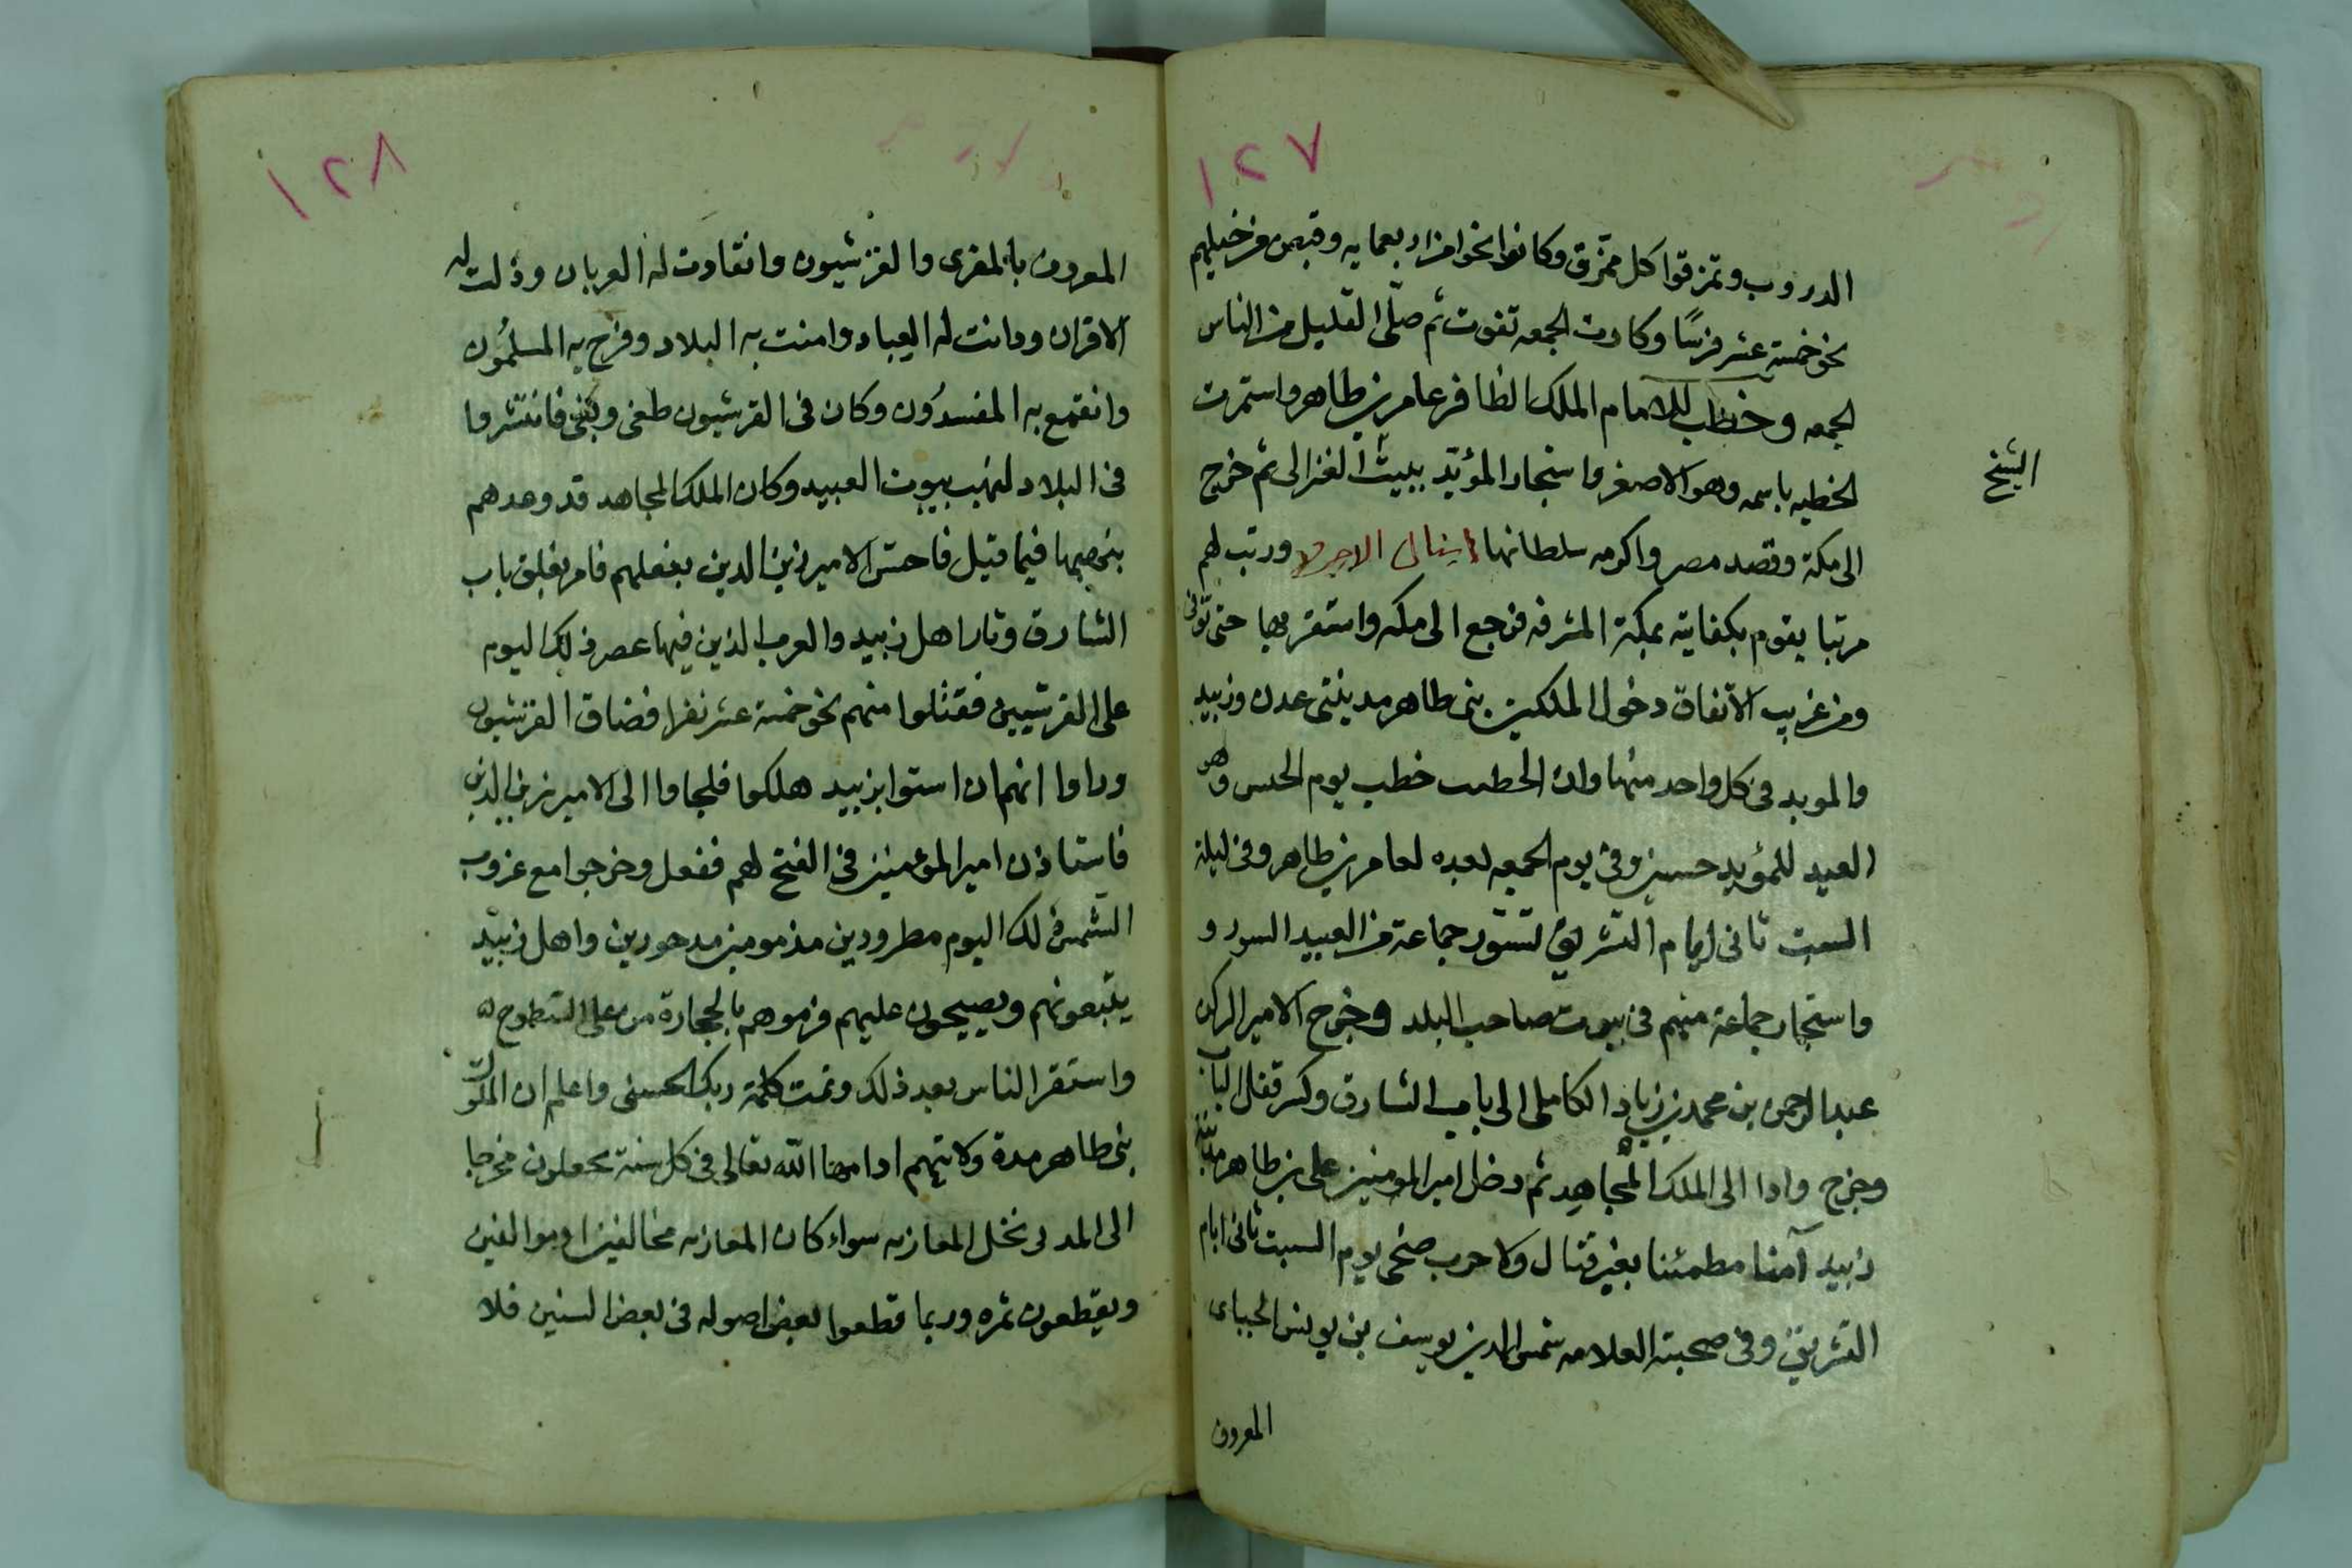 ١٢٧
الدروب وتمزقوا كل ممزق وكانوا نحوا من اربعمايه وقبض من خيلهم
نحو خمسة عشر فرسًا وكادت الجمعه تفوت ثم صلّى القليل من الناس
الجمعه وخطب للامام الملك الظافر عامر بن طاهر واستمرت
الخطبه باسمه وهو الاصغر واستجار المؤيّد ببيت الغزالى ثم خرج
الشيخ
الى مكة وقصد مصر واكرمه سلطانها اينال الاجرود ورتب لهم
مرتبا يقوم بكفايته بمكة المشرفه فرجع الى مكه واستقر بها حتى توفى
ومن غريب الاتفاق دخول الملكين بنى طاهر مدينتى عدن وزبيد
والمويد فى كل واحد منهما وان الخطيب خطب يوم الخميس وهو
العيد للمؤيد حسين وفى يوم الجمعه بعده لعامر بن طاهر وفى ليلة
السبت ثانى ايام التشريق تسوّر جماعة من العبيد السور و
واستجار جماعة منهم فى بيوت صاحب البلد وخرج الامير الركن
عبد الرحمن بن محمد بن زياد الكاملى الى باب الشارق وكسر قفل الباب
وخرج وادا الى الملك المجاهد ثم دخل امير المومنين على بن طاهر مدينة
زبيد آمنا مطمئنا بغير قتال ولا حرب ضحى يوم السبت ثانى ايام
التشريق وفى صحبته العلامه شمس الدين يوسف بن يونس الجباى
المعروف
١٢٨
المعروف بالمقرى والقرشيون وانقادت له العربان وذلت له
الاقران ودانت له العباد وامنت به البلاد وفرح به المسلمُون
وانقمع به المفسدُون وكان فى القرشيون طغى وبغى فانتشروا
فى البلاد لنهب بيوت العبيد وكان الملك المجاهد قد وعدهم
بنهبها فيما قيل فاحتس الامير زين الدين بفعلهم فامر بغلق باب
الشارق وثار اهل زبيد والعرب الذين فيها عصر ذلك اليوم
على القرشيين فقتلوا منهم نحو خمسة عشر نفرا فضاق القرشيون
وراوا انهم ان استوا بزبيد هلكوا فلجاوا الى الامير زين الدين
فاستاذن امير المومنين فى الفتح لهم ففعل وخرجوا مع غروب
الشمس ذلك اليوم مطرودين مذمومين مدحورين واهل زبيد
يتبعونهم ويصيحون عليهم فرموهم بالحجارة من على السطوح ه
واستقر الناس بعد ذلك وتمت كلمة ربك الحسنى واعلم ان الملوك
بنى طاهر مدة ولايتهم ادامها الله تعالى فى كل سنة يجعلون مخرجا
الى المدى نخل المعازبه سواء كان المعازبه مخالفين او موالفين
ويقطعون ثمره وربما قطعوا بعض اصوله فى بعض السنين فلا